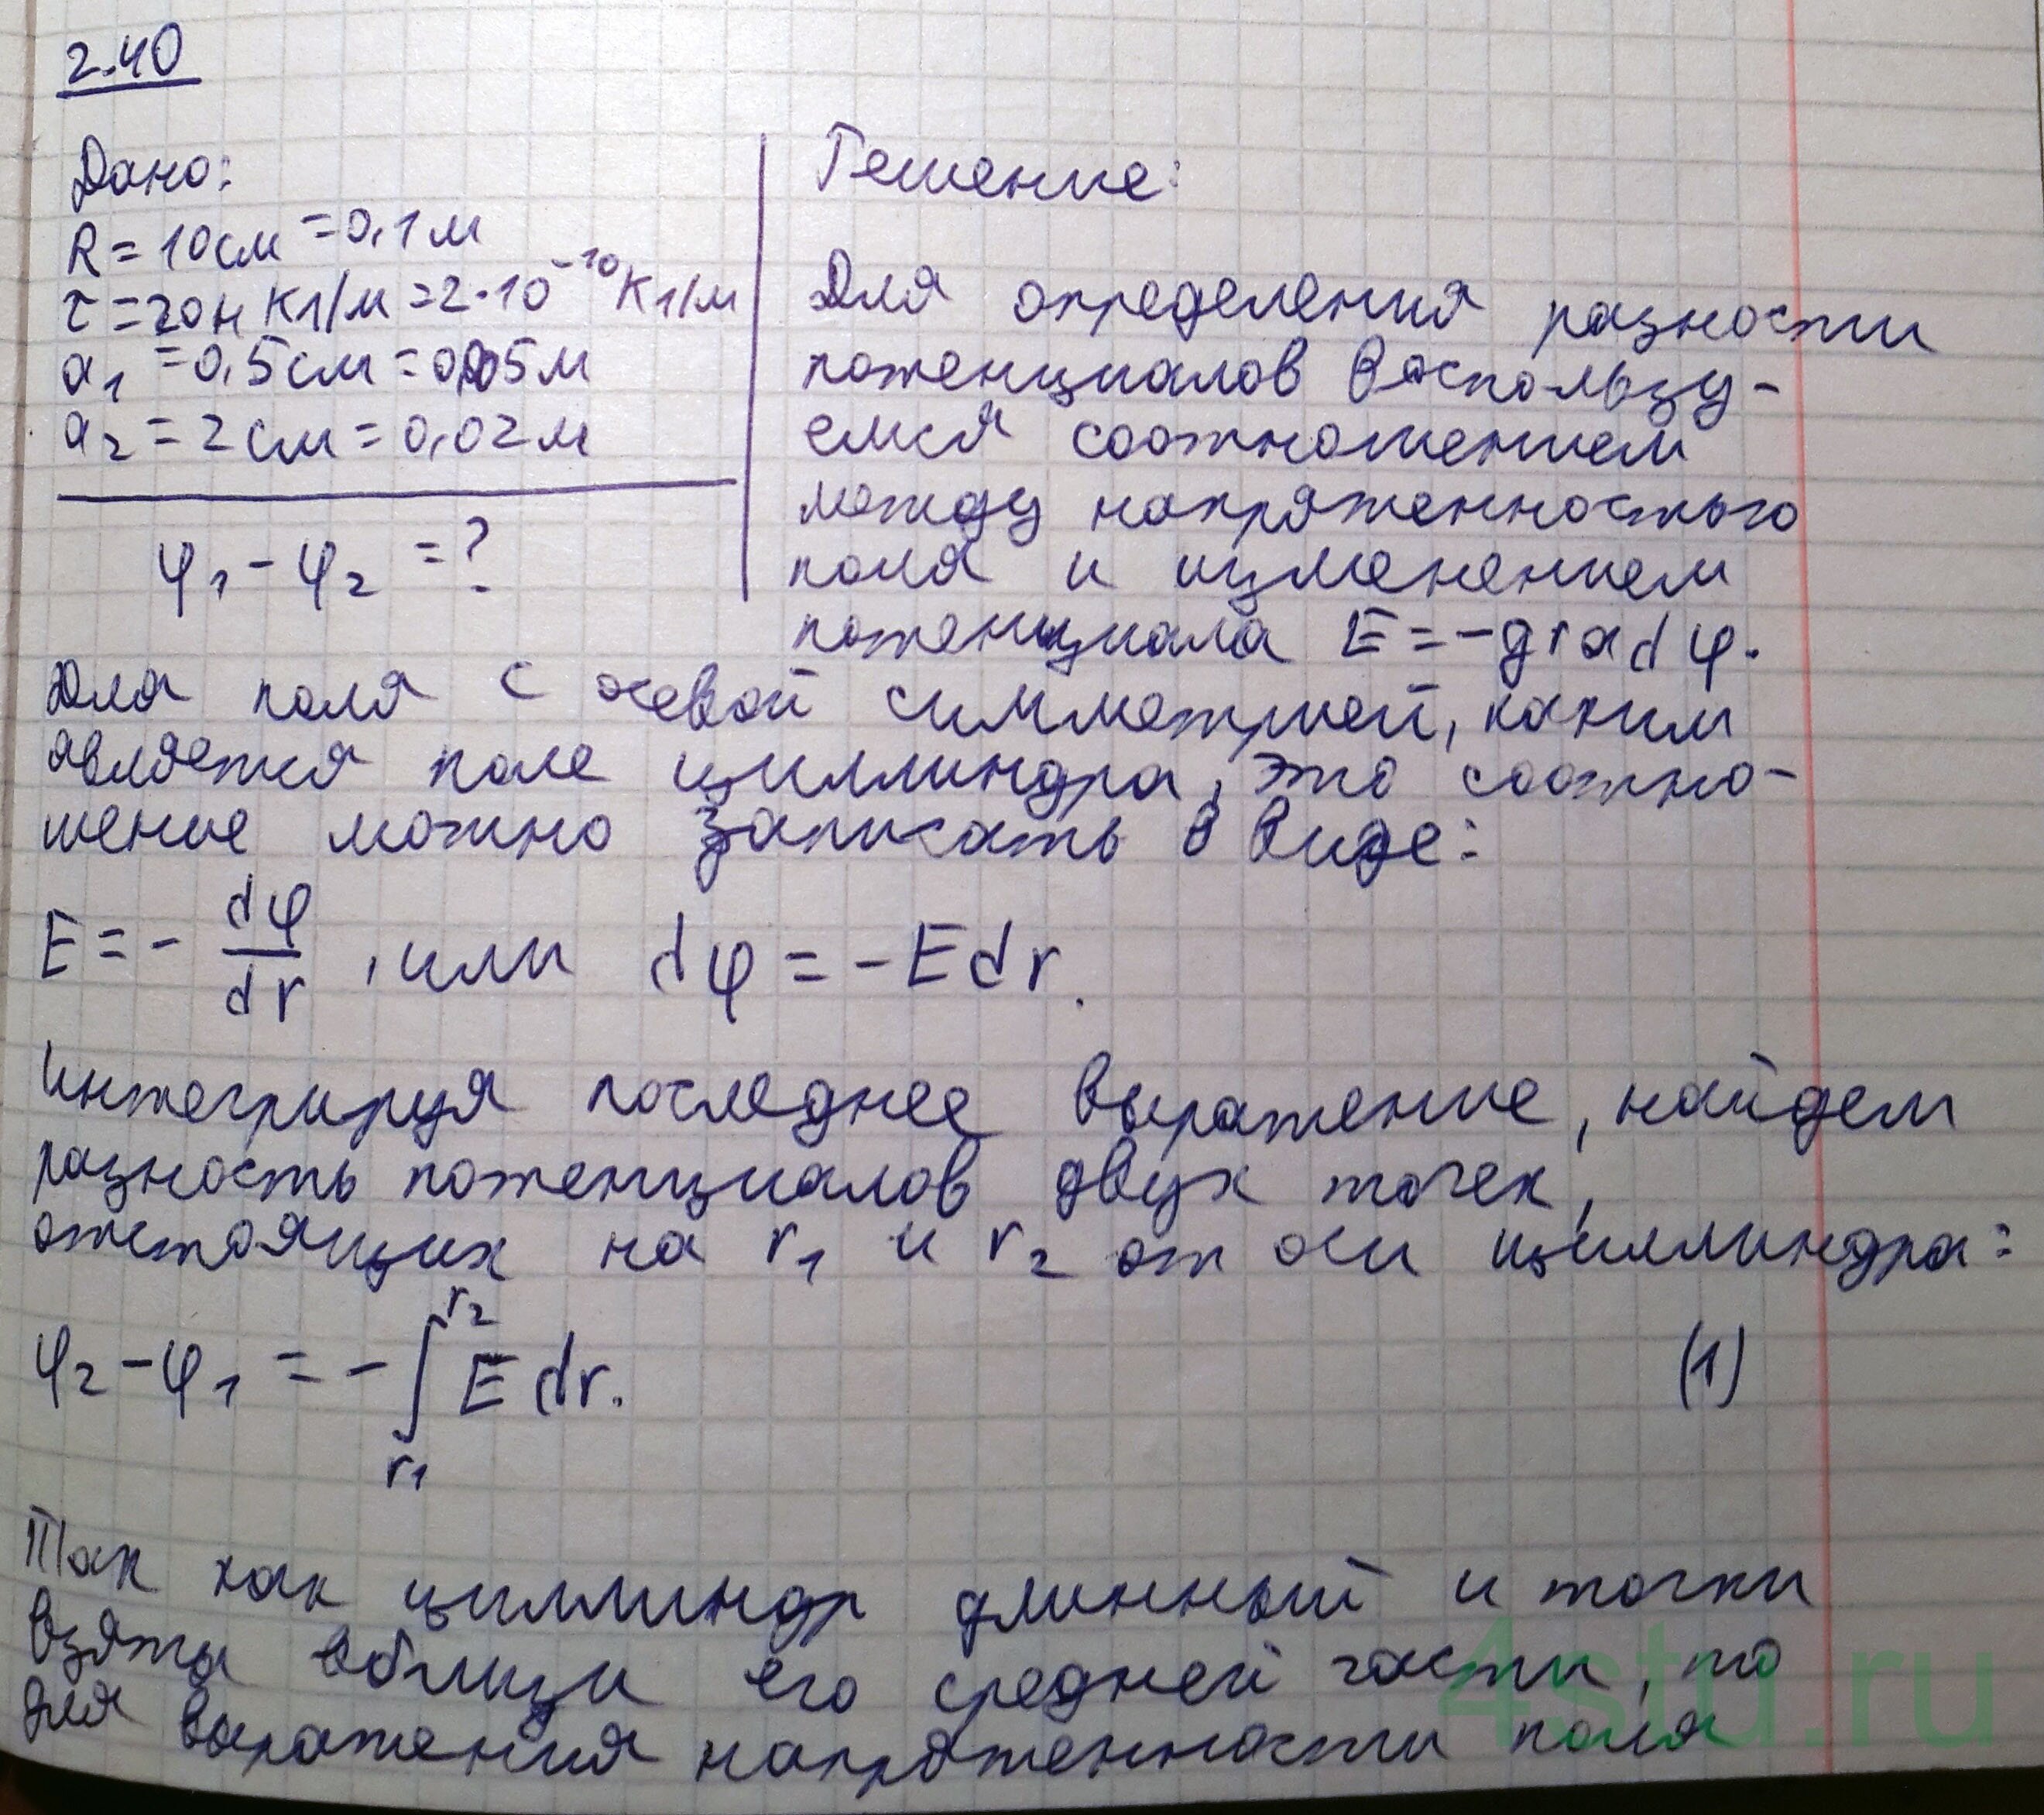 2.40
Дано:
R = 10см = 0,1м
τ = 20нКл/м = 2·10⁻¹⁰Кл/м
a₁ = 0,5см = 0,005м
a₂ = 2см = 0,02м
φ₁ - φ₂ = ?
Решение:
Для определения разности
потенциалов воспользу-
емся соотношением
между напряженностью
поля и изменением
потенциала E = -grad φ.
Для поля с осевой симметрией, каким
является поле циллиндра, это соотно-
шение можно записать в виде:
E = - dφ/dr, или dφ = -Edr.
Интегрируя последнее выражение, найдем
разность потенциалов двух точек,
отстоящих на r₁ и r₂ от оси циллиндра:
φ₂ - φ₁ = - ∫_{r₁}^{r₂} E dr. (1)
Так как циллиндр длинный и точки
взяты вблизи его средней части, то
для выражения напряженности поля
4stu.ru